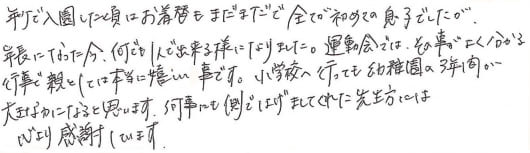 年少で入園した頃はお着替もまだまだで全てが初めての息子でしたが、
年長になった今、何でも1人で出来る様になりました。運動会では、その事がよく分かる
行事で親としては本当に嬉しい事です。小学校へ行っても幼稚園の3年間が
大きなかてになると思います。何事にも側ではげましてくれた先生方には
心より感謝しています。